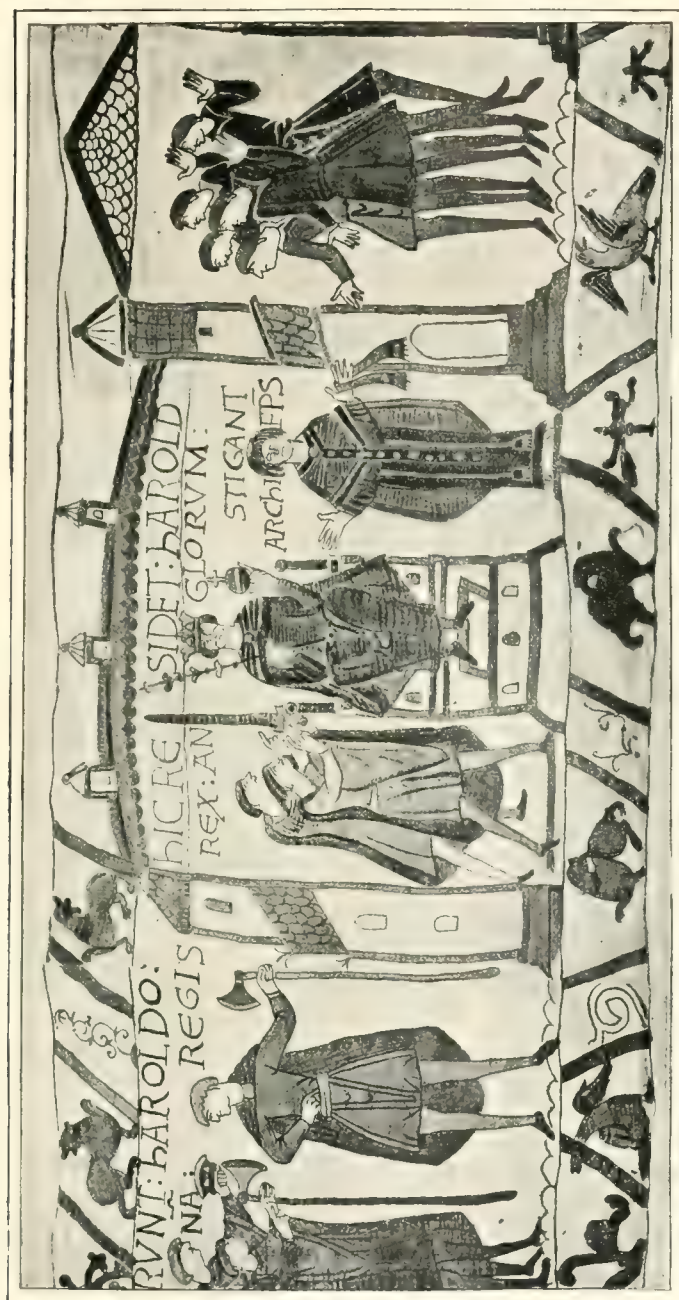 RVNT: hAROLDO:
NĀ: REGIS
hIC RE SIDET: hAROLD
REX: AN GLORVM:
STIGANT
ARChI EPS